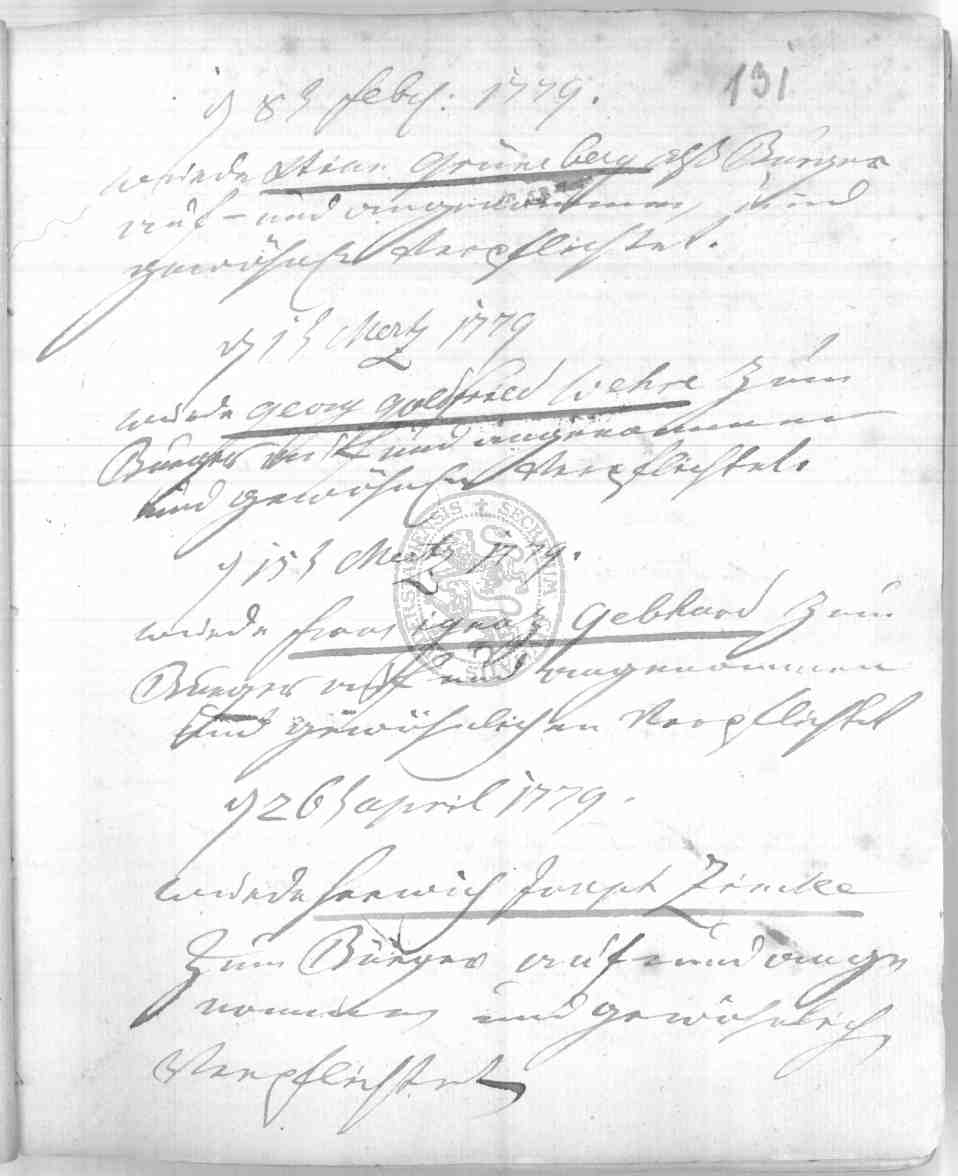 131
d 8t febr: 1779.
wurde Grüneberg alß Bürger
auf- und angenommen, und
gewöhnlich Verpflichtet.
d 1t Mertz 1779
wurde georg gottfried Wehre Zum
Bürger auf und angenommen
und gewöhnlich Verpflichtet.
d 15t Mertz 1779.
wurde frantz ignatz Gebhard Zum
Bürger auff und angenommen
und gewöhnlichen Verpflichtet
d 26t april 1779.
wurde Joseph Zincke
Zum Bürger auf und ange
nommen und gewöhnlich
Verpflichtet